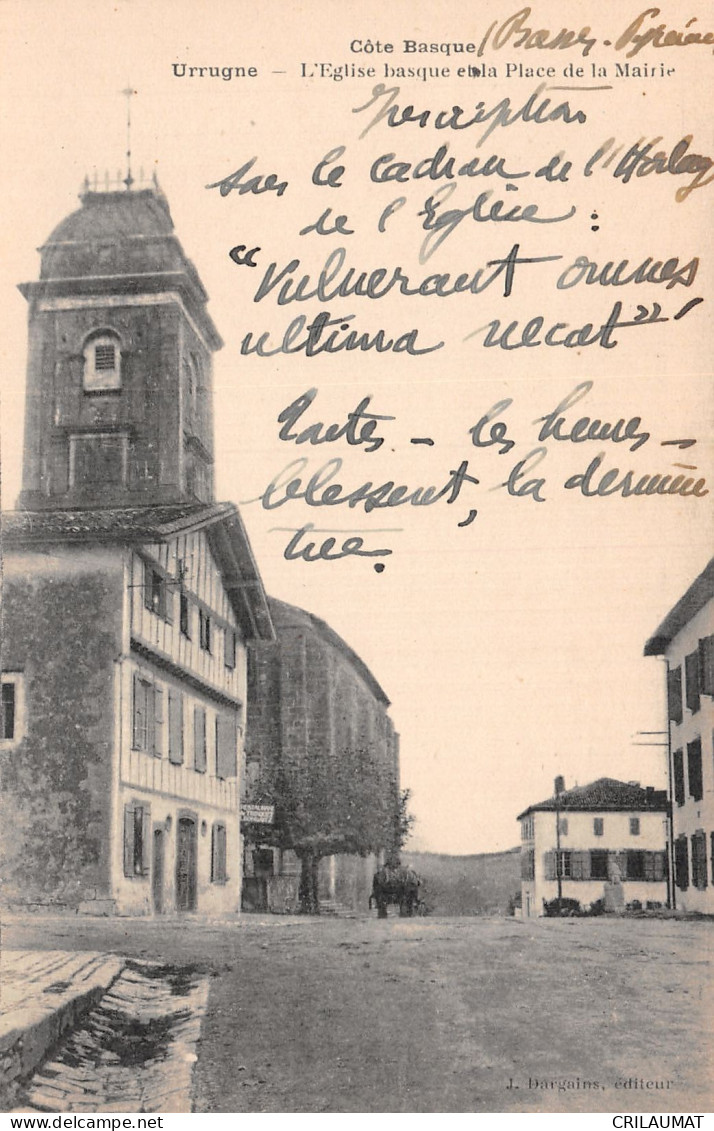 Côte Basque (Basses-Pyrénées
Urrugne — L'Eglise basque et la Place de la Mairie
Inscription
sur le cadran de l'Horloge
de l'Eglise :
"Vulnerant omnes
ultima necat"
Toutes - les heures -
blessent, la dernière
tue.
RESTAURANT
J. Dargains, éditeur
CRILAUMAT